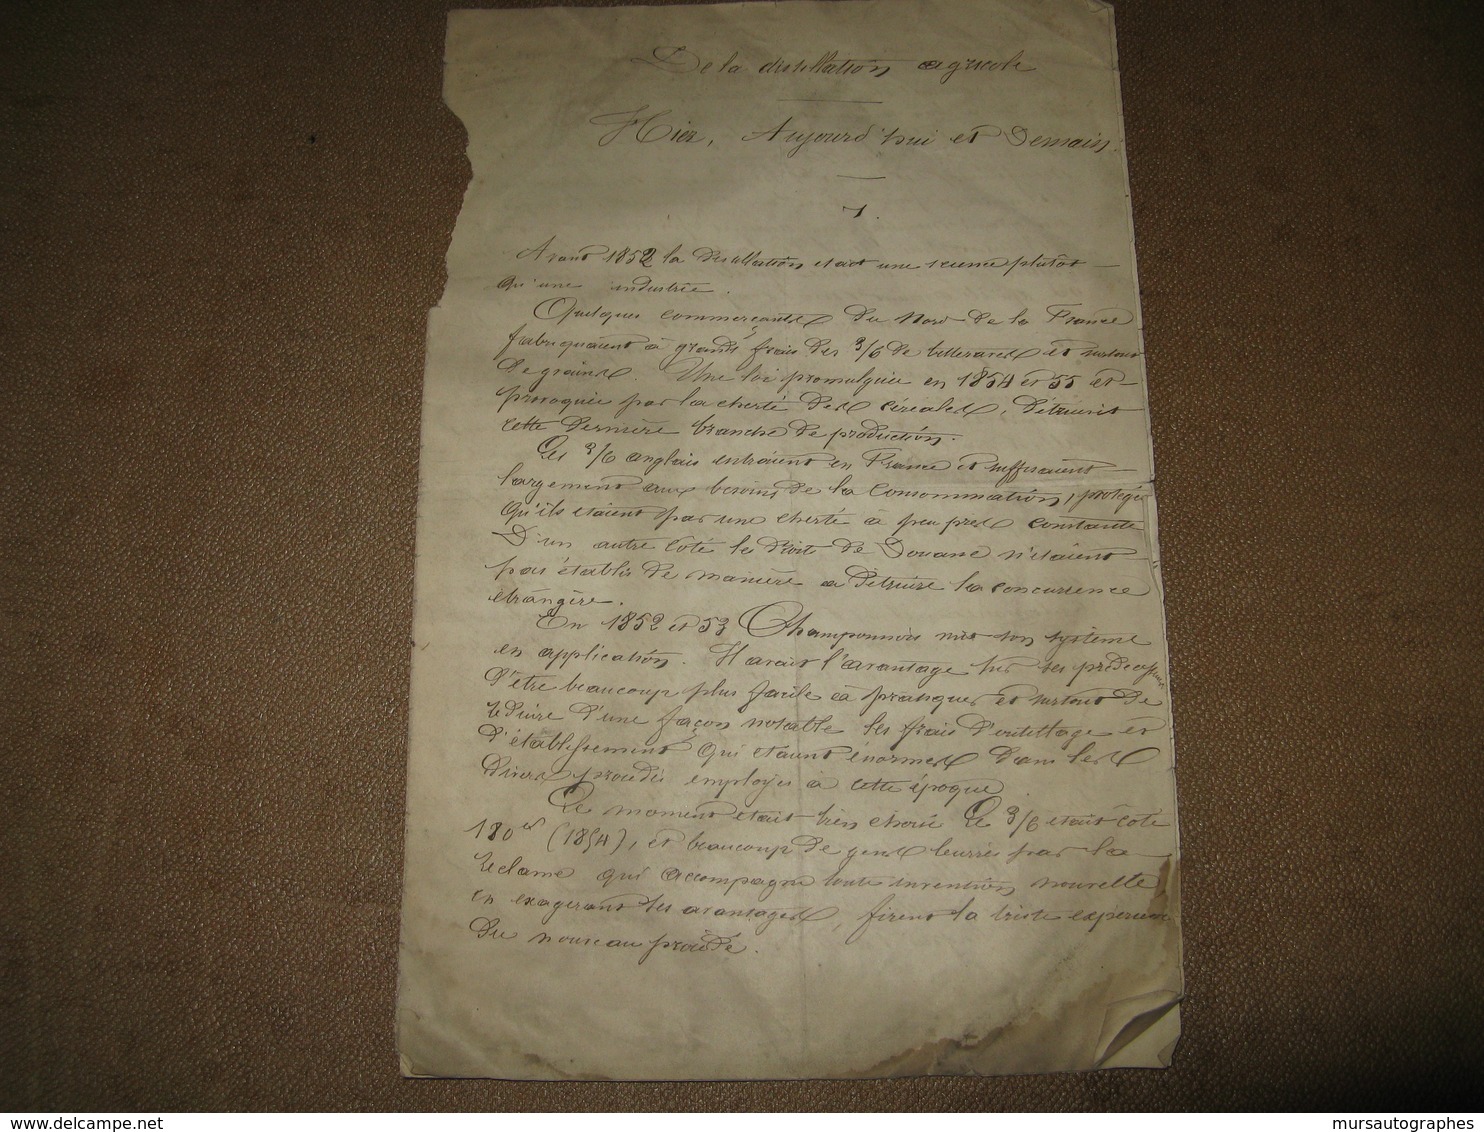 De la distillation agricole
Hier, Aujourd'hui et Demain.
1.
Avant 1852 la distillation était une science plutôt
qu'une industrie.
Quelques commerçants du Nord de la France
fabriquaient à grands frais des 3/6 de betteraves et surtout
de grains. Une loi promulguée en 1854 et 55 et
provoquée par la cherté des céréales, détruisit
cette dernière branche de production.
Les 3/6 anglais entraient en France et suffisaient
largement aux besoins de la consommation, protégés
qu'ils étaient par une cherté à peu près constante
D'un autre côté les droits de Douane n'étaient
pas établis de manière à détruire la concurrence
étrangère.
En 1852 et 53 Champonnois mit son système
en application. Il avait l'avantage sur ses prédécesseurs
d'être beaucoup plus facile à pratiquer et surtout de
réduire d'une façon notable les frais d'outillage et
d'établissement qui étaient énormes dans les
divers procédés employés à cette époque.
Le moment était bien choisi Le 3/6 était côté
180 (1854), et beaucoup de gens leurrés par la
réclame qui accompagne toute invention nouvelle
en exagérant ses avantages, firent la triste expérience
du nouveau procédé.
delcampe.net
mursautographes